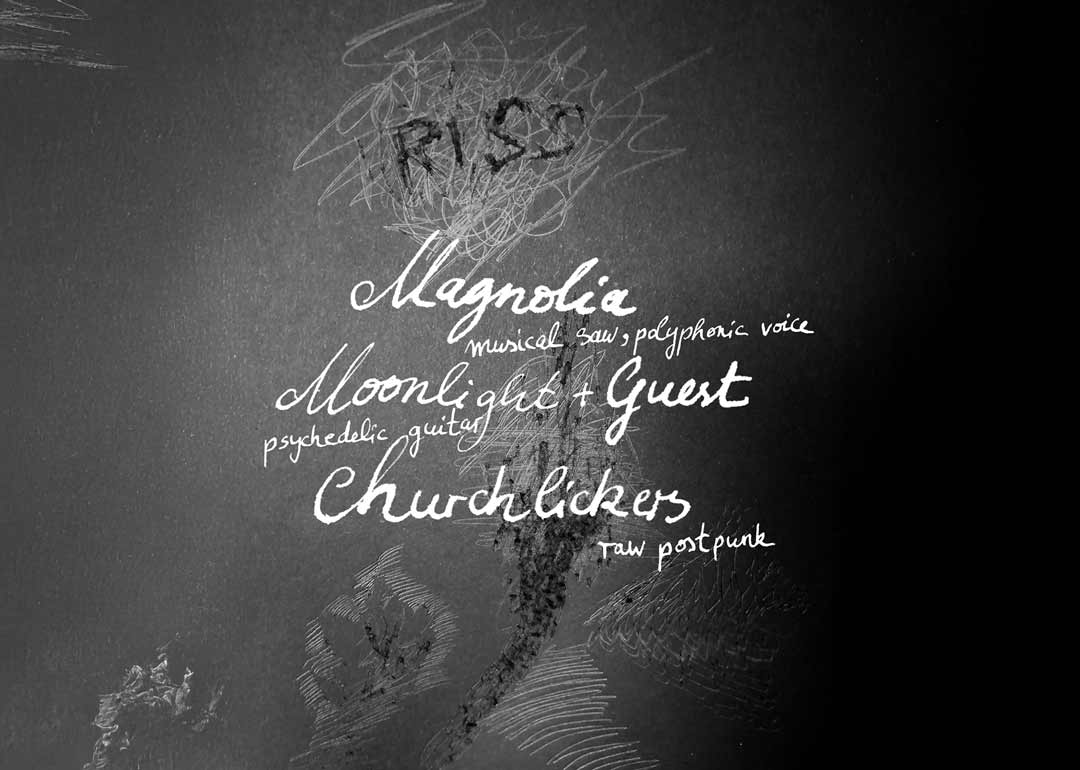 RISS
Magnolia
musical saw, polyphonic voice
Moonlight + Guest
psychedelic guitar
Churchlickers
raw postpunk